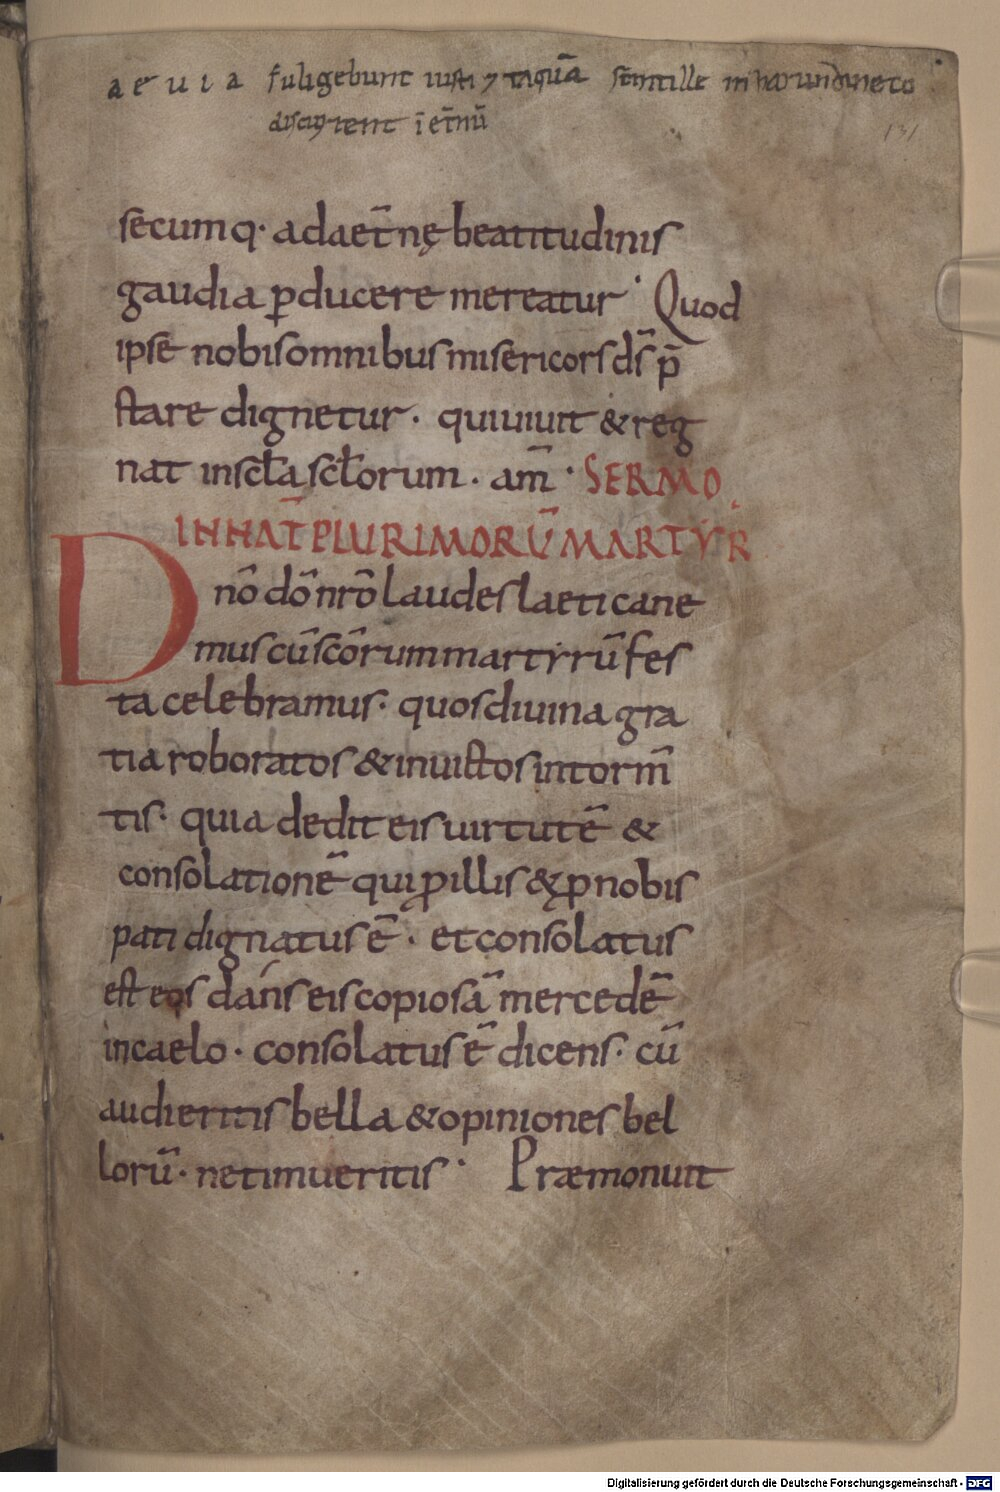 a e u i a fuligebunt iusti ⁊ taquā scintille in harundineto
discurrent ī et̄nū
131
secumq· ad aet̄nę beatitudinis
gaudia p̱ducere mereatur· Quod
ipse nobis omnibus misericors ds̄ p̄
stare dignetur· qui uiuit & reg
nat in scƚa scƚorum· am̄· SERMO
IN NAT̄ PLURIMORŪ MARTYR̄
Dnō dō nrō laudes laeti cane
mus cū scōrum martyrū fes
ta celebramus· quos diuina gra
tia roboratos & inuictos in torm̄
tis· quia dedit eis uirtutē &
consolationē qui ꝓ illis & ꝓ nobis
pati dignatus ē· et consolatus
est eos dans eis copiosā mercedē
in caelo· consolatus ē dicens· cū
audieritis bella & opiniones bel
lorū· ne timueritis· Præmonuit
Digitalisierung gefördert durch die Deutsche Forschungsgemeinschaft - DFG